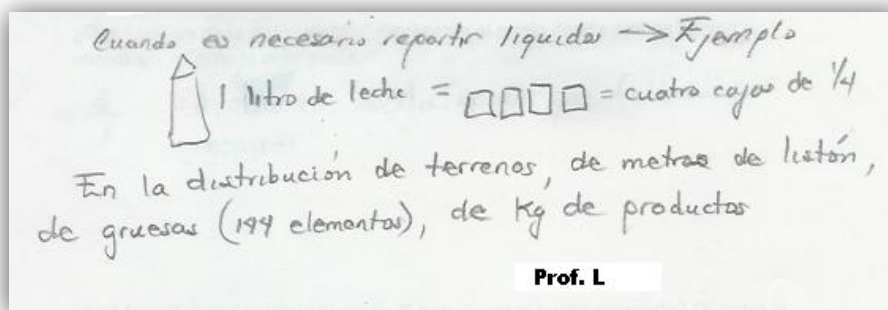 Cuando es necesario repartir liquidos → Ejemplo
1 litro de leche = = cuatro cajas de 1/4
En la distribución de terrenos, de metros de listón,
de gruesas (144 elementos), de Kg de productos
Prof. L